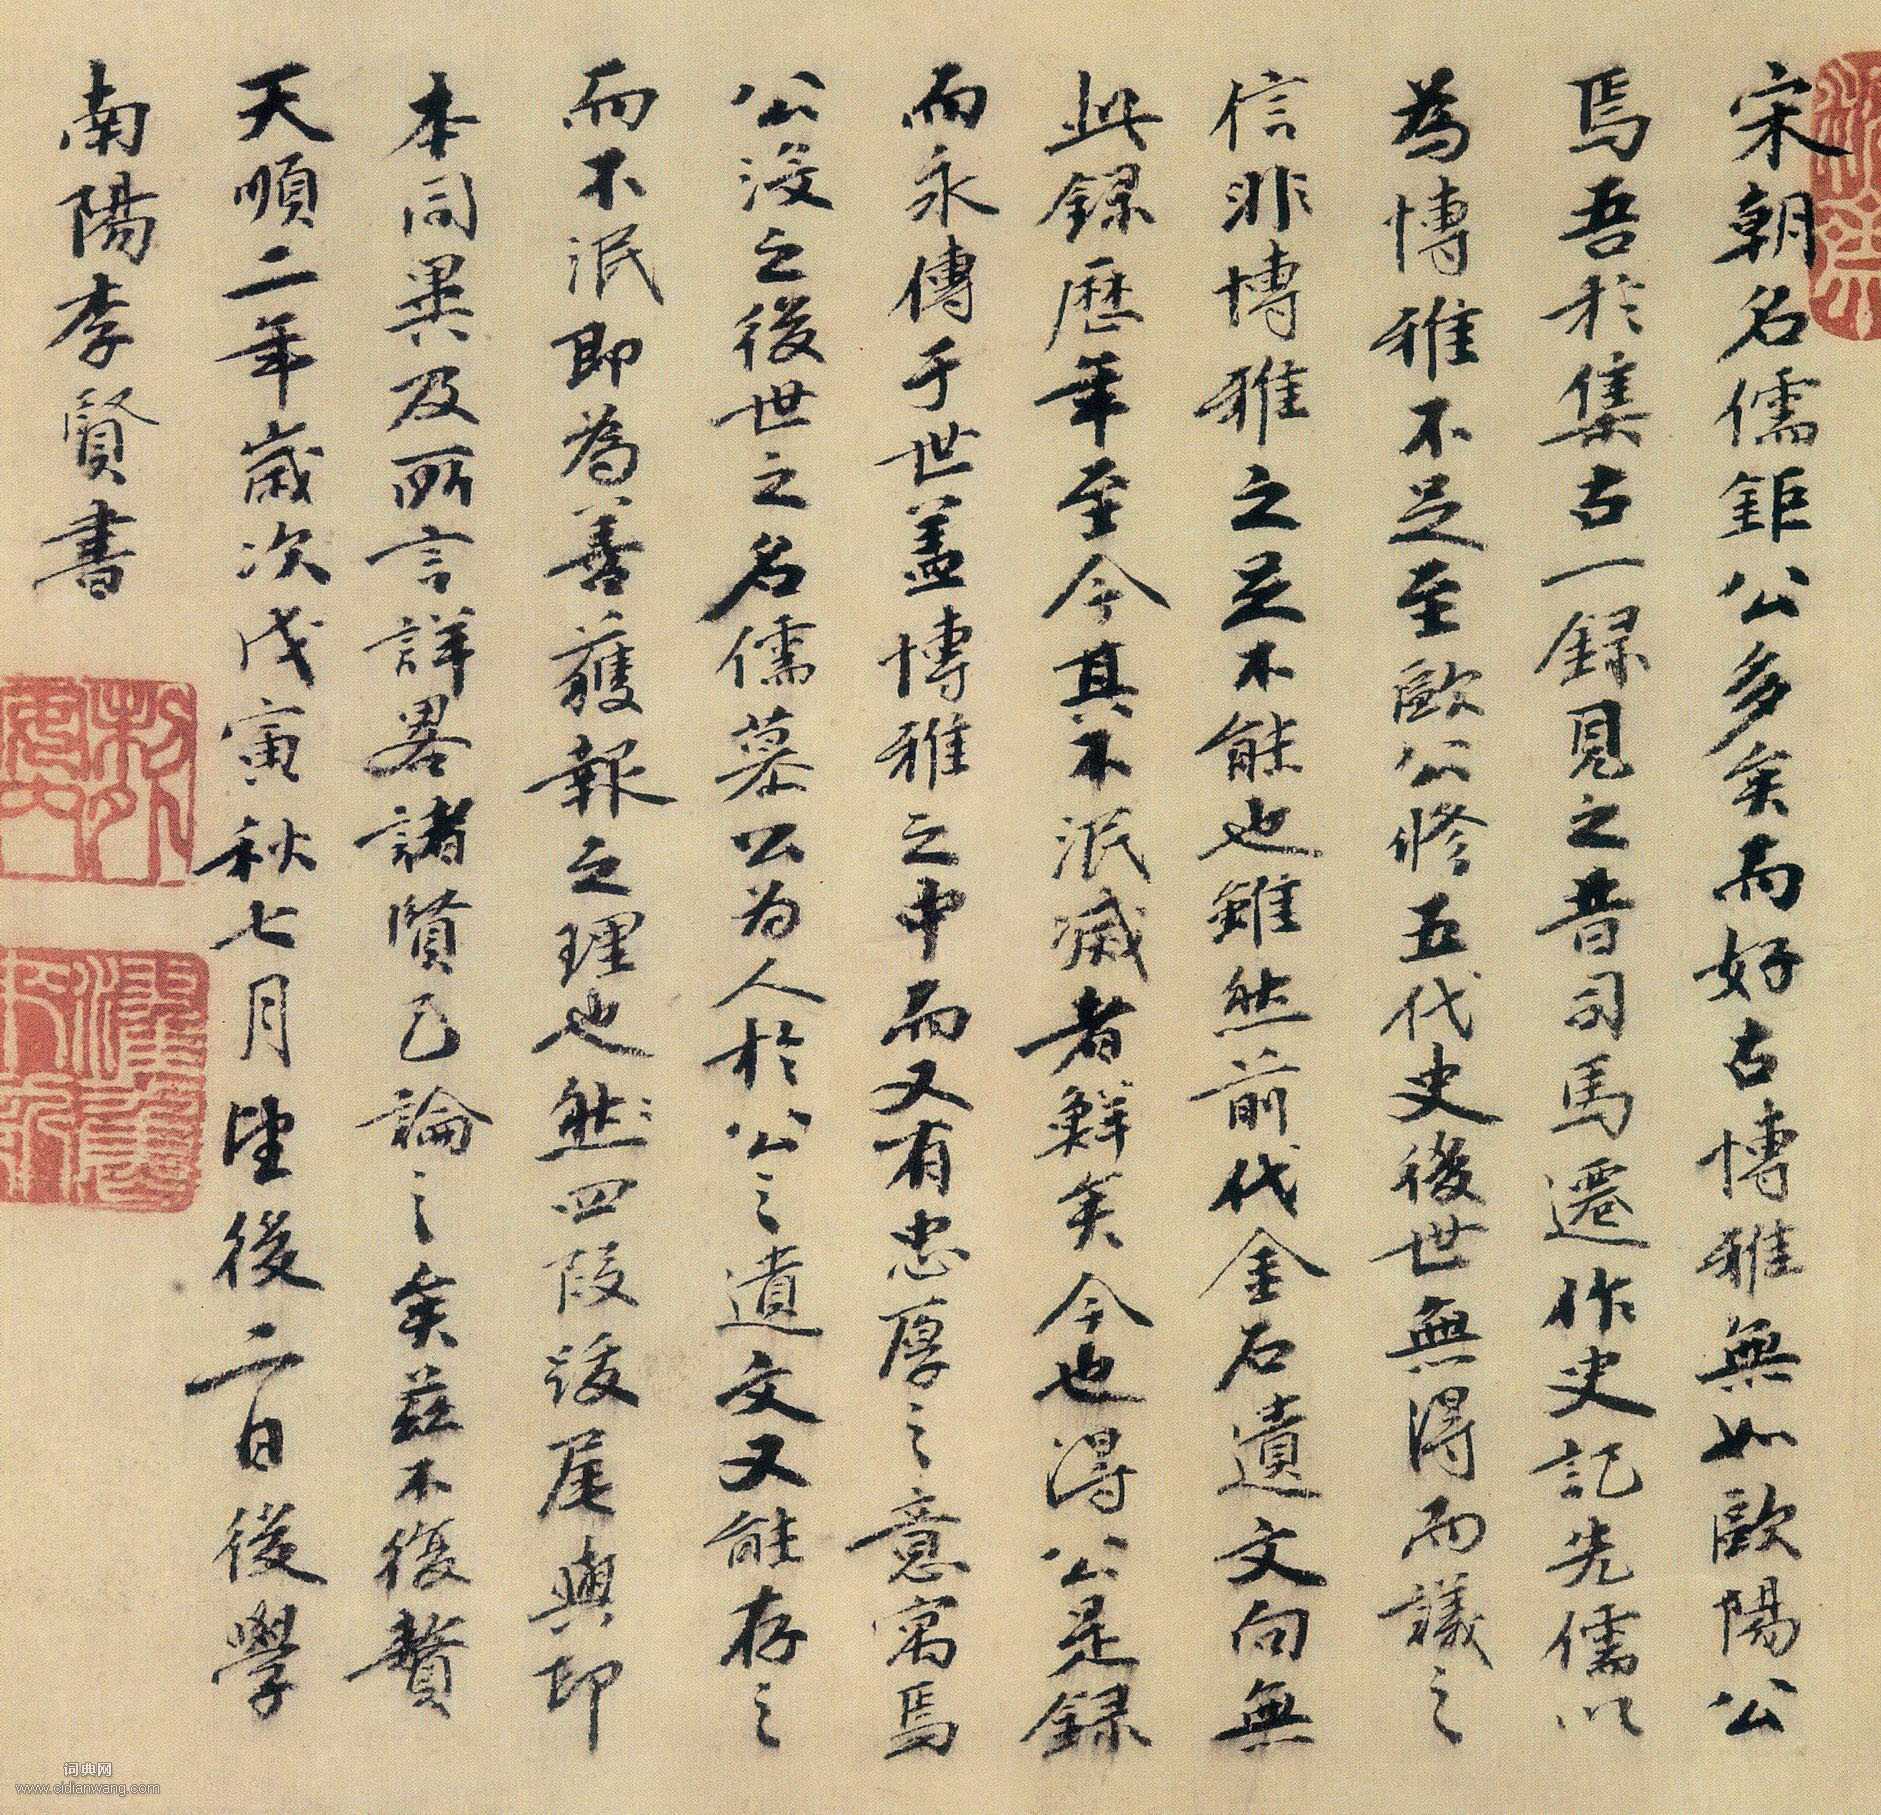 宋朝名儒鉅公多矣而好古博雅無如歐陽公
焉吾於集古一錄見之昔司馬遷作史記先儒以
為博雅不足至歐公修五代史後世無得而議之
信非博雅之足不能也雖然前代金石遺文向無
此錄歷年至今其不泯滅者鮮矣今也得公是錄
而永傳于世盖博雅之中而又有忠厚之意寓焉
公沒之後世之名儒慕公為人於公之遺文又能存之
而不泯即為善獲報之理也然四段後尾與印
本同異及所言詳畧諸賢已論之矣茲不復贅
天順二年歲次戊寅秋七月望後二日後學
南陽李賢書
词典网
www.cidianwang.com